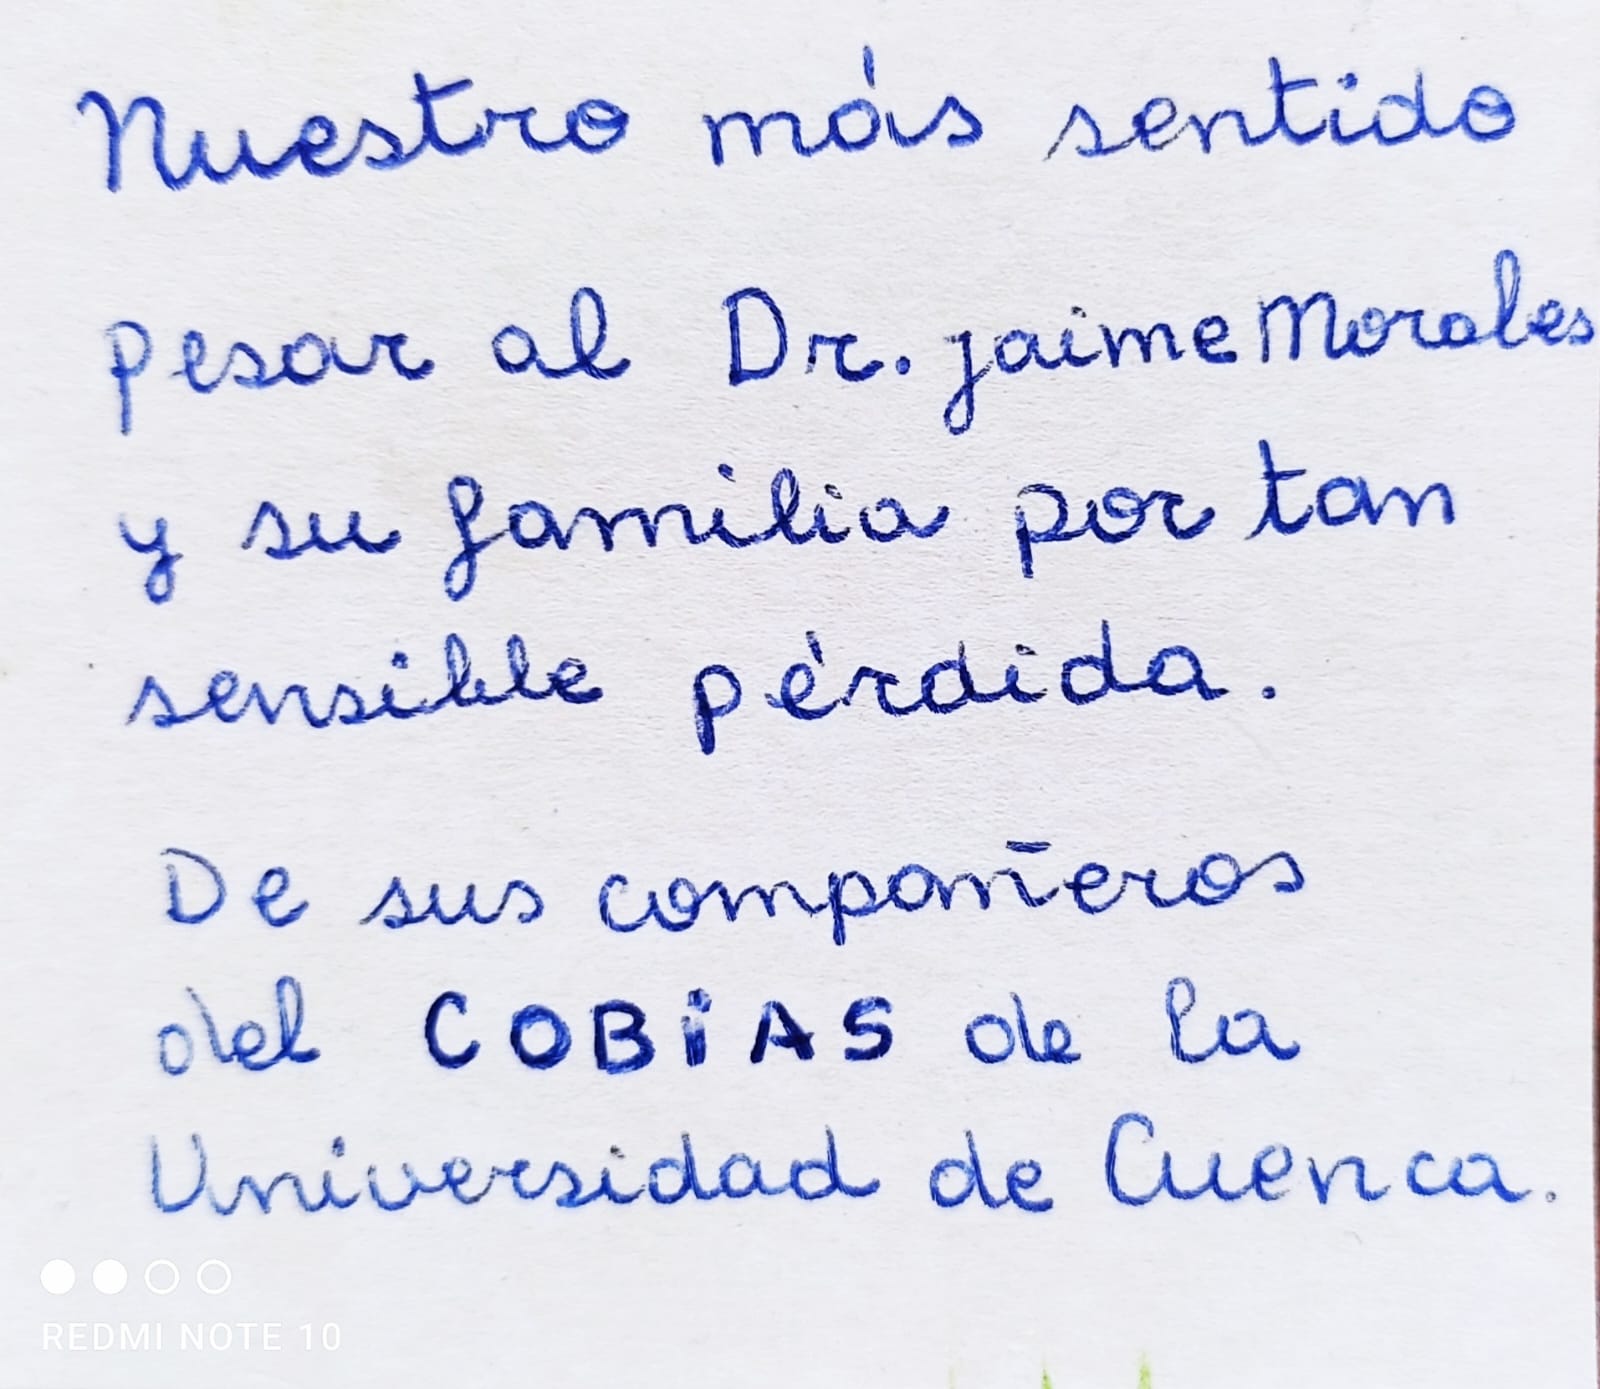 Nuestro más sentido
pesar al Dr. jaime Morales
y su familia por tan
sensible pérdida.
De sus compañeros
del COBiAS de la
Universidad de Cuenca.
REDMI NOTE 10